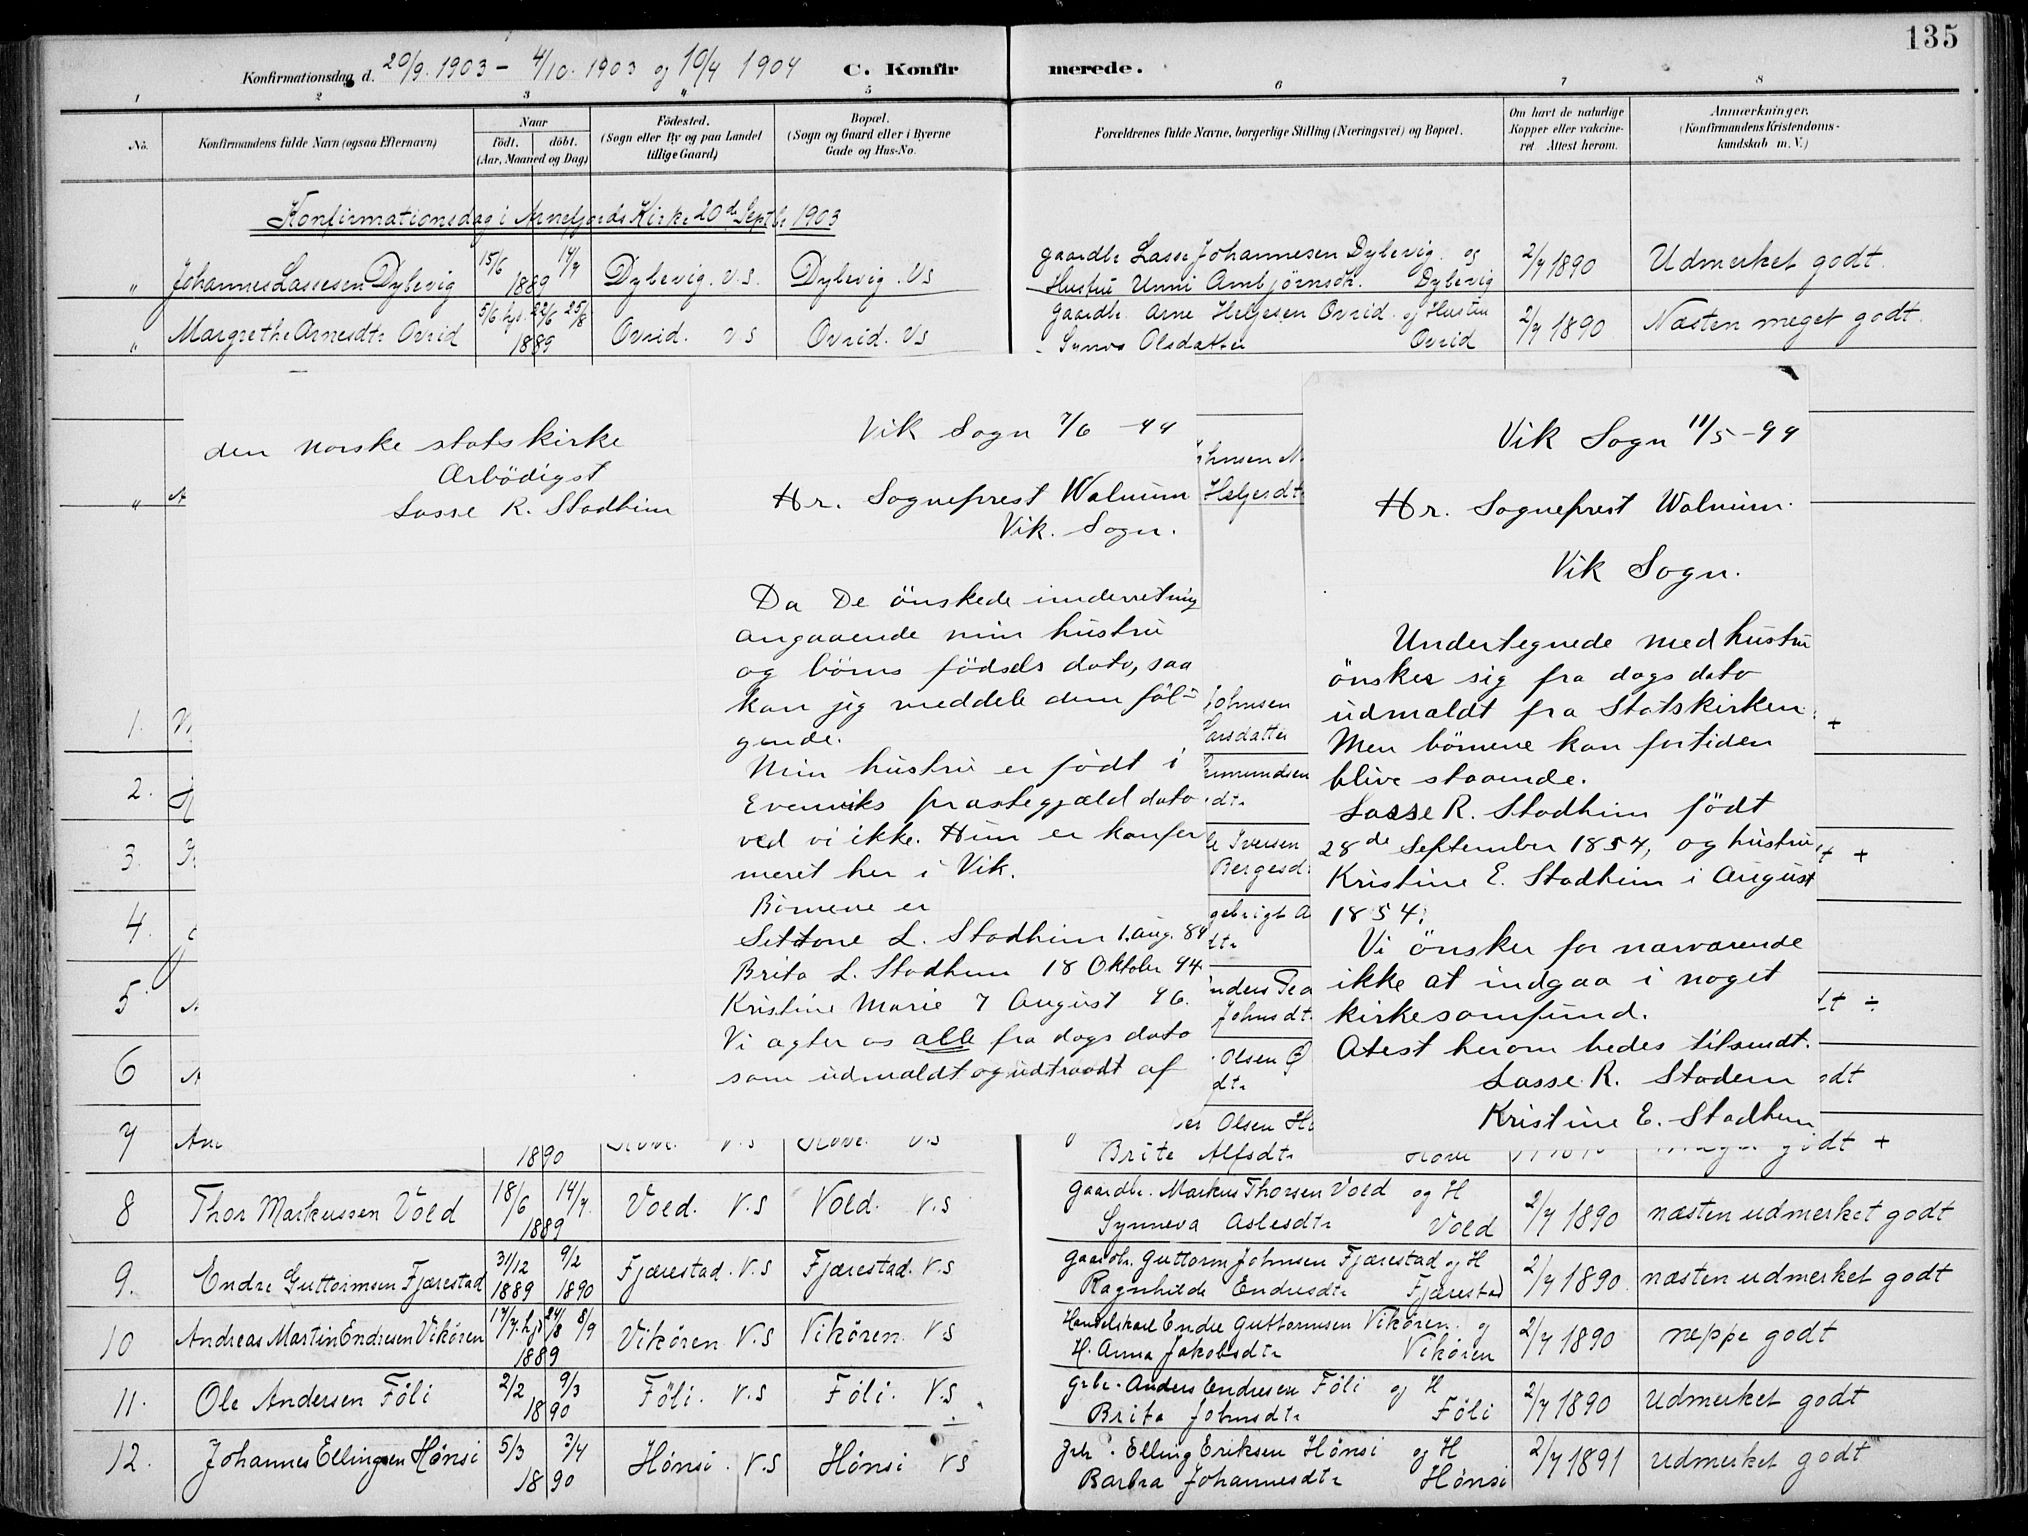 135
Konfirmationsdag d. 20/9. 1903 - 4/10. 1903 og 10/4 1904 C. Konfirmerede.
1 2 3 4 5 6 7 8
No. Konfirmandens fulde Navn (ogsaa Efternavn) Naar født. døbt. (Aar, Maaned og Dag) Fødested. (Sogn eller By og paa Landet tillige Gaard) Bopæl. (Sogn og Gaard eller i Byerne Gade og Hus-No. Forældrenes fulde Navne, borgerlige Stilling (Næringsvei) og Bopæl. Om havt de naturlige Kopper eller vakcineret Attest herom. Anmærkninger. (Konfirmandens Kristendomskundskab m. V.)
Konfirmationsdag i Arnefjords Kirke 20de Septbr 1903
" Johannes Lassesen Dylevig 15/6 14/7 1889 Dylevig. V.S. Dylevig. VS gaardbr Lasse Johannesen Dylevig og Hustru Unni Ambjörnsdtr. Dylevig 2/7 1890 Udmerket godt.
" Margrethe Arnesdtr Ovrid 5/6 hjd. 22/6 25/8 1889 Ovrid. VS Ovrid. VS gaardbr. Arne Helgesen Ovrid og Hustru Synva Olsdatter Ovrid 2/7 1890 Næsten meget godt.
den norske statskirke
Ærbödigst
Lasse R. Stadheim
Vik Sogn 7/6 -99
Hr. Sogneprest Walnum
Vik. Sogn.
Da De önskede underretning
angaaende min hustru
og börns födsels dato, saa
kan jeg meddele dem föl-
gende.
Min hustru er födt i
Evenviks præstegjæld dato
ved vi ikke. Hun er konfer
meret her i Vik.
Börnene er
L. Stadheim 1. Aug. 84
Brita L. Stadheim 18 Oktober 94
Kristine Marie 7 August 96.
Vi agter os alle fra dags dato
som udmældt og udtraadt af
Vik Sogn 11/5 -99
Hr. Sogneprest Walnum.
Vik Sogn.
Undertegnede med hustru
önsker sig fra dags dato
udmældt fra Statskirken.
Men börnene kan fortiden
blive staaende.
Lasse R. Stadheim födt
28de September 1854, og hustru
Kristine E. Stadheim i August
1854.
Vi önsker for nærværende
ikke at indgaa i noget
kirkesamfund.
Atest herom bedes tilsendt.
Lasse R. Stadem
Kristine E. Stadheim
Helgesdt
1.
Johnsen
Larsdatter
+
2.
3.
Iversen
Bergesd
+
4.
5.
Johnsdt.
÷
6
Olsen
7
1890
Olsen
Brite Alfsdtr Hove
godt +
8 Thor Markussen Vold 18/6 14/7. 1889 Vold. V.S Vold. V.S Gaardbr. Markus Thorsen Vold og H Synneva Aslesdtr Vold 2/7 1890 næsten udmerket godt
9. Endre Guttormsen Fjærestad 31/12 1889 9/2 1890 Fjærestad. V.S Fjærestad. V.S Gaardbr. Guttorm Johnsen Fjærestad og H Ragnhilde Endresdtr Fjærestad 2/7 1890. næsten udmerket godt
10 Andreas Martin Endresen Vikören 17/7. hjd 24/8 8/9 1889 Vikören V.S Vikören. VS Handelskarl Endre Guttormsen Vikören. og H. Anna Jakobsdtr Vikören 2/7 1890 neppe godt
11. Ole Andersen Föli 2/2 9/3 1890 Föli. V.S Föli. V.S Grbr. Anders Endresen Föli og H Brita Johnsdtr Föli 2/7 1890 udmerket godt
12. Johannes Ellingsen Hönsi 5/3 7/4 1890 Hönsi. V.S Hönsi VS Grbr. Elling Eriksen Hönsi og H Barbra Johannesdtr Hönsi 2/7 1891 udmerket godt